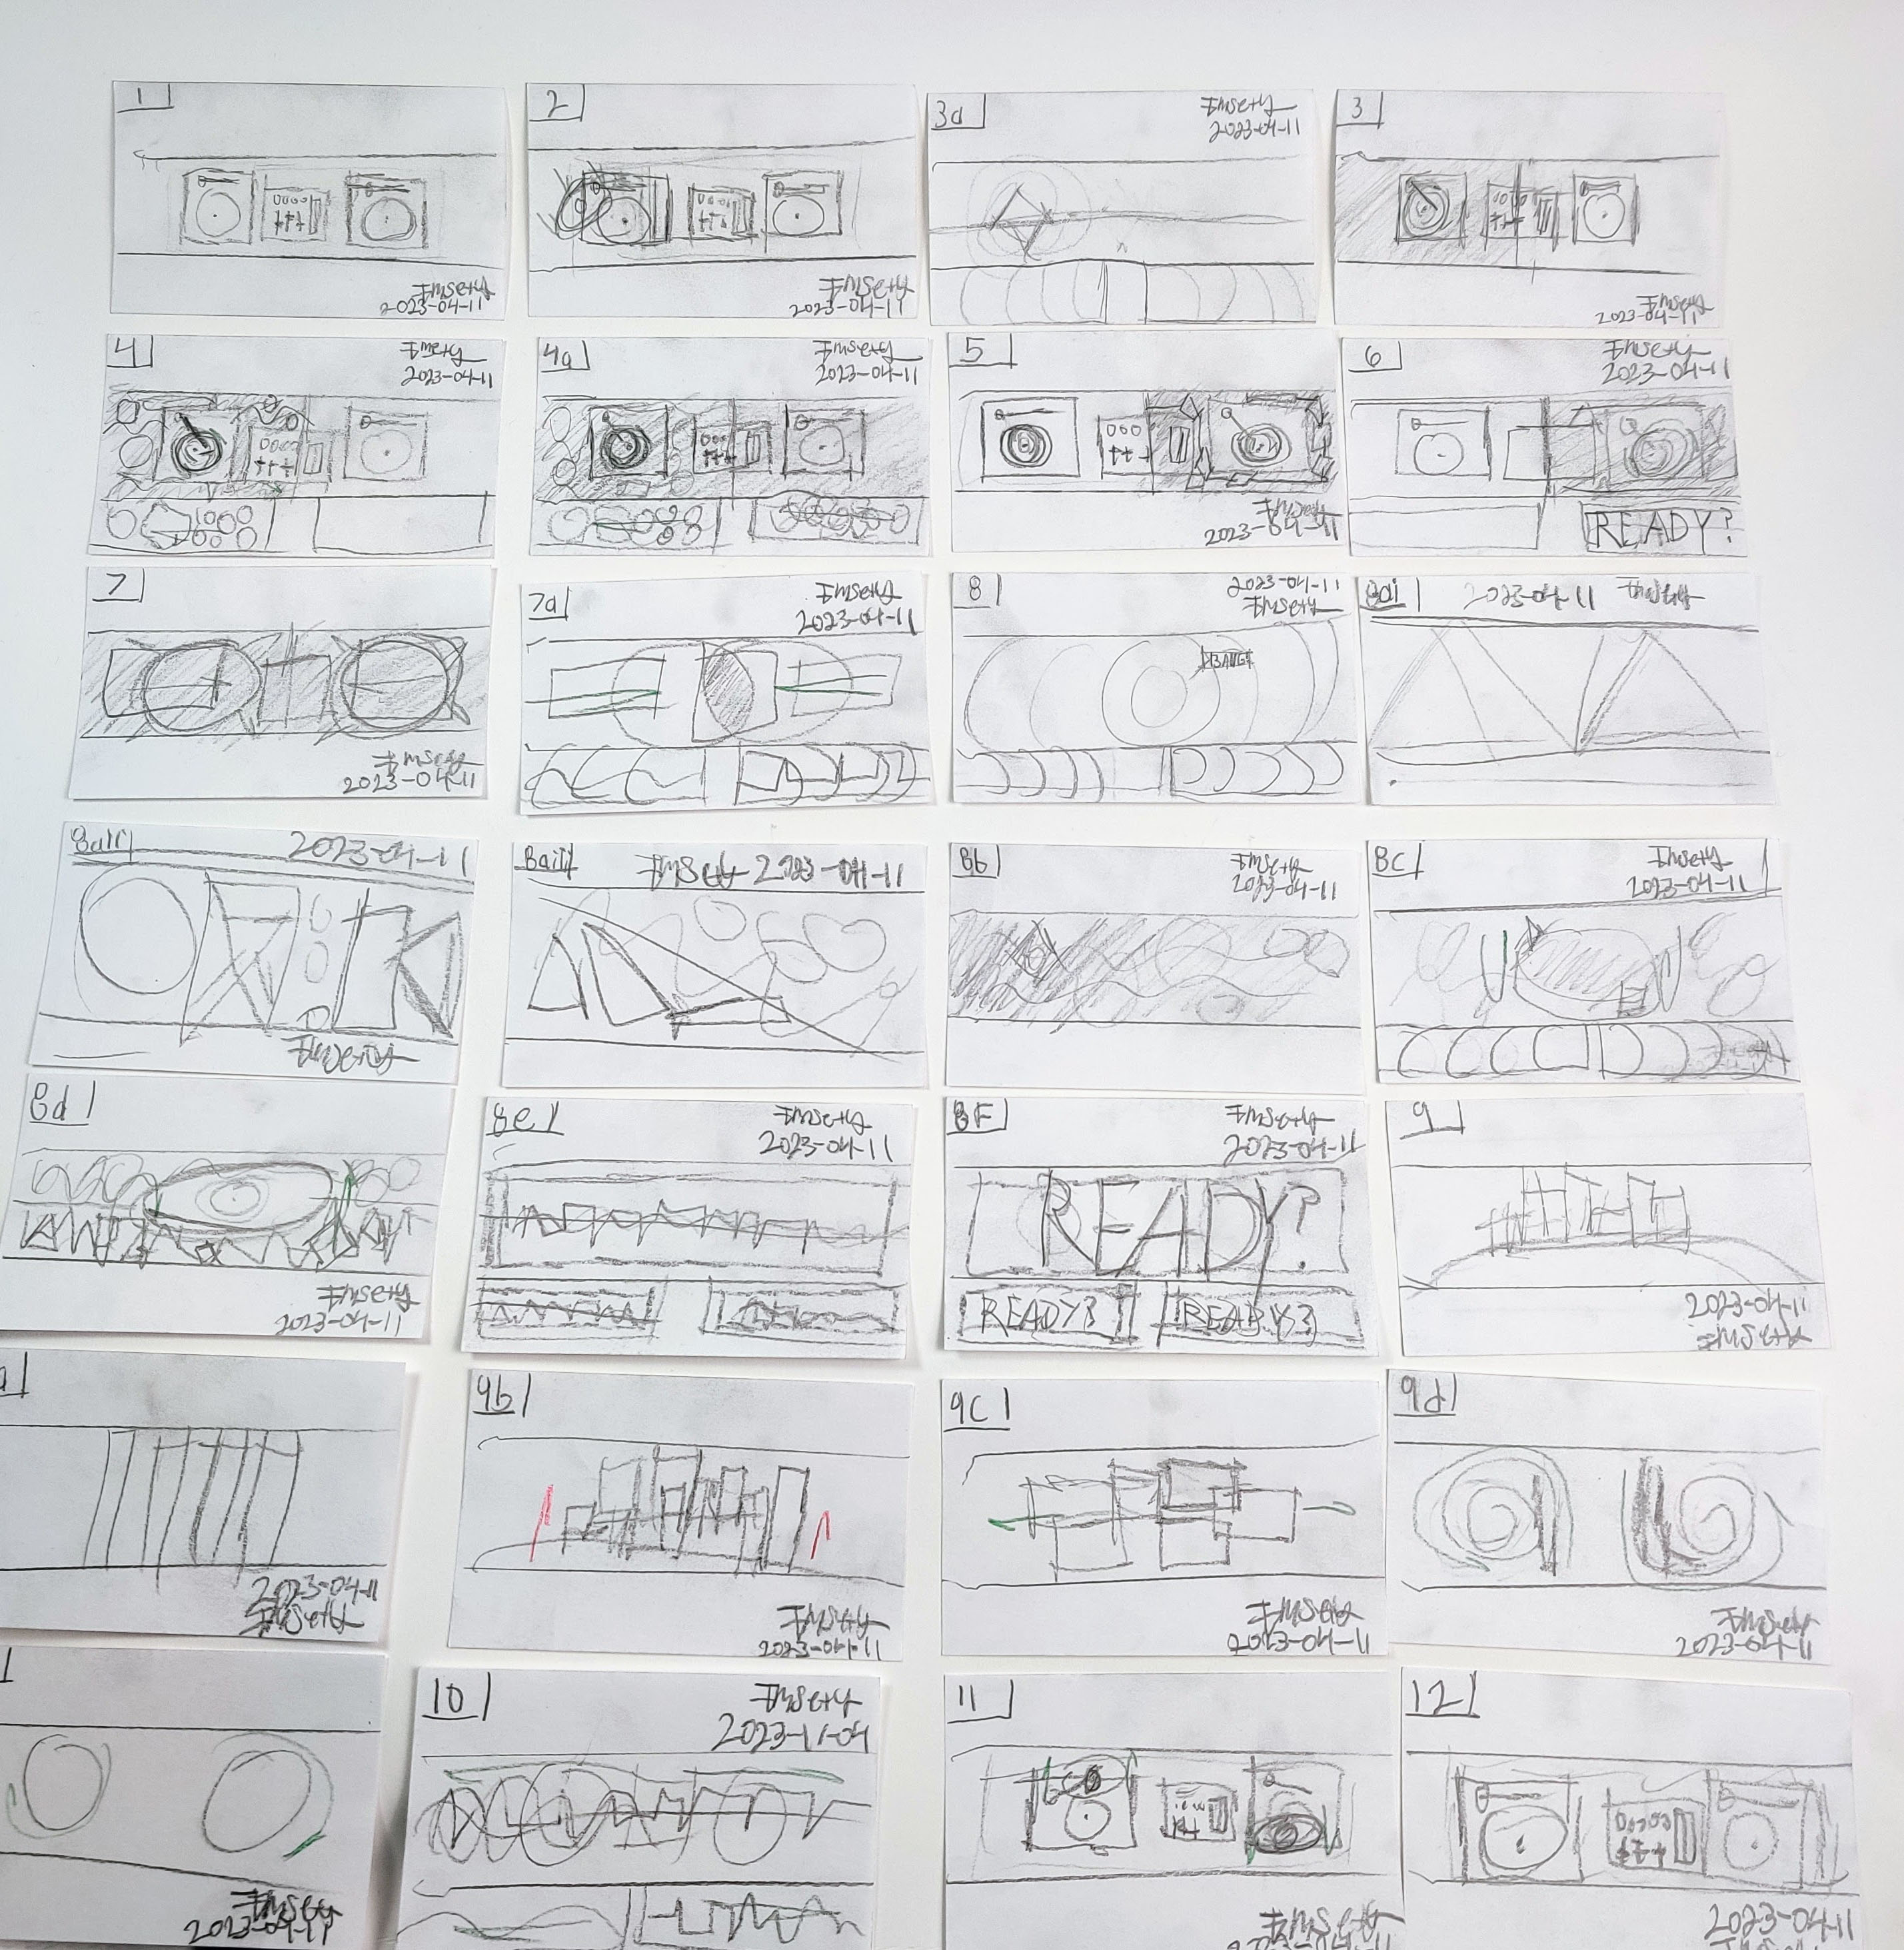 1
Imsety
2023-04-11
2
Imsety
2023-04-11
3a
Imsety
2023-04-11
3
Imsety
2023-04-11
4
Imety
2023-04-11
4a
Imsety
2023-04-11
5
Imsety
2023-04-11
6
Imsety
2023-04-11
READY?
7
Imsety
2023-04-11
7a
Imsety
2023-04-11
8
2023-04-11
Imsety
8ai
2023-04-11 Imsety
8aii
2023-04-11
Imsety
8aiii
Imsety 2023-04-11
8b
Imsety
2023-04-11
8c
Imsety
2023-04-11
8d
Imsety
2023-04-11
8e
Imsety
2023-04-11
8F
Imsety
2023-04-11
READY?
READY?
READY?
9
2023-04-11
Imsety
2023-04-11
Imsety
9b
Imsety
2023-04-11
9c
Imsety
2023-04-11
9d
Imsety
2023-04-11
Imsety
2023-04-11
10
Imsety
2023-11-04
11
Imsety
2023-04-11
12
2023-04-11
Imsety